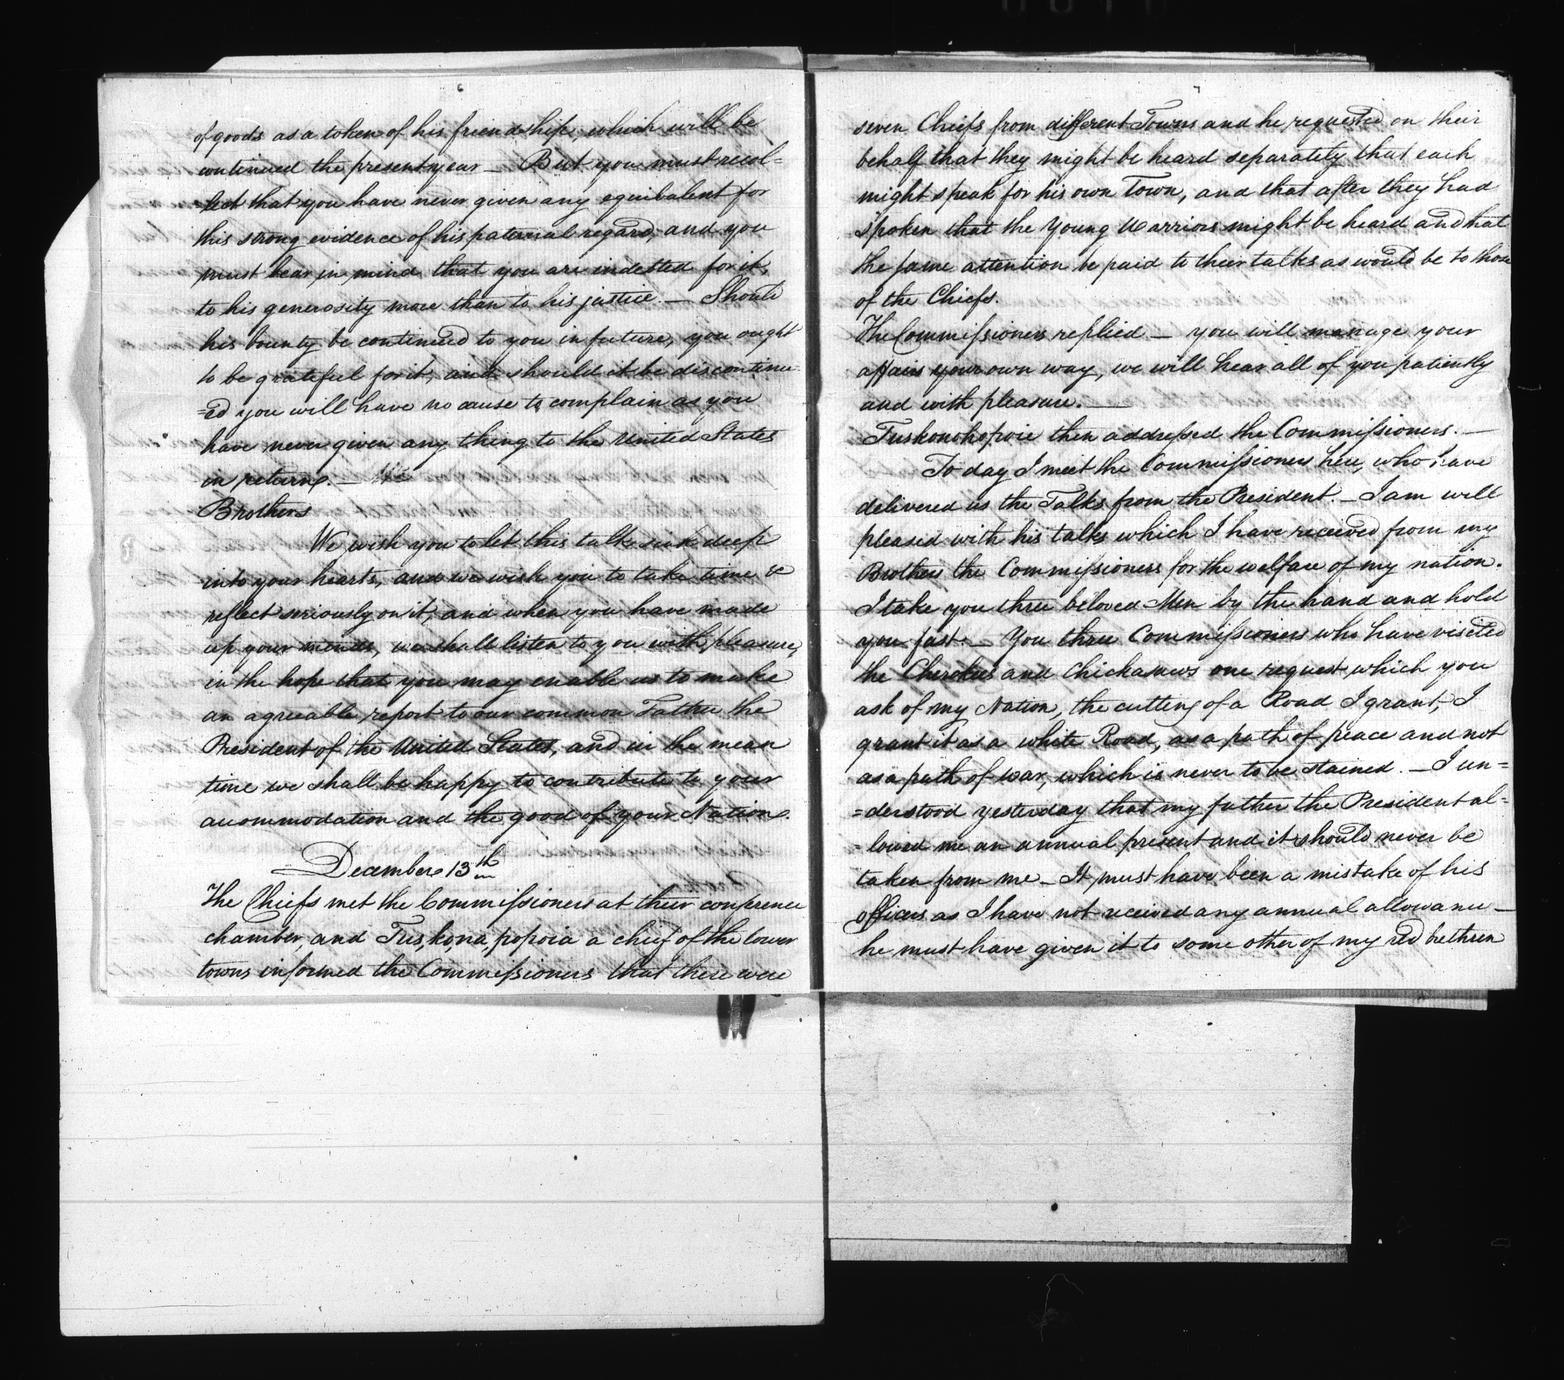 6
of goods as a token of his friendship, which will be
continued the present year — But you must recol=
lect that you have never given any equivalent for
this strong evidence of his paternal regard, and you
must bear in mind that you are indebted for it,
to his generosity more than to his justice. — Should
his bounty be continued to you in future, you ought
to be grateful for it, and should it be discontinu
=ed you will have no cause to complain as you
have never given any thing to the United States
in return. —
Brothers
We wish you to let this talk sink deep
into your hearts, and we wish you to take time &
reflect seriously on it, and when you have made
up your minds, we shall listen to you with pleasure,
in the hope that you may enable us to make
an agreeable report to our common Father the
President of the United States, and in the mean
time we shall be happy to contribute to your
accommodation and the good of your Nation.
December 13th
The Chiefs met the Commissioners at their conference
chamber, and Tuskona popoia a chief of the lower
towns informed the Commissioners that there were
7
seven Chiefs from different Towns and he requested on their
behalf that they might be heard separately that each
might speak for his own Town, and that after they had
spoken that the Young Warriors might be heard and that
the same attention be paid to their talks as would be to those
of the Chiefs.
The Commissioners replied — you will manage your
affairs your own way, we will hear all of you patiently
and with pleasure. —
Tuskonohopoie then addressed the Commissioners. —
To day I meet the Commissioners here, who have
delivered us the Talks from the President. — I am will
pleased with his talks which I have received from my
Brothers the Commissioners for the welfare of my nation.
I take you three beloved Men by the hand and hold
you fast. — You three Commissioners who have viseted
the Cherekees and Chickasaws one request which you
ask of my Nation, the cutting of a Road I grant, I
grant it as a white Road, as a path of peace and not
as a path of war, which is never to be stained. — I un=
=derstood yesterday that my father the President al=
=lowed me an annual present and it should never be
taken from me — It must have been a mistake of his
officers as I have not received any annual allowance —
he must have given it to some other of my red brethren